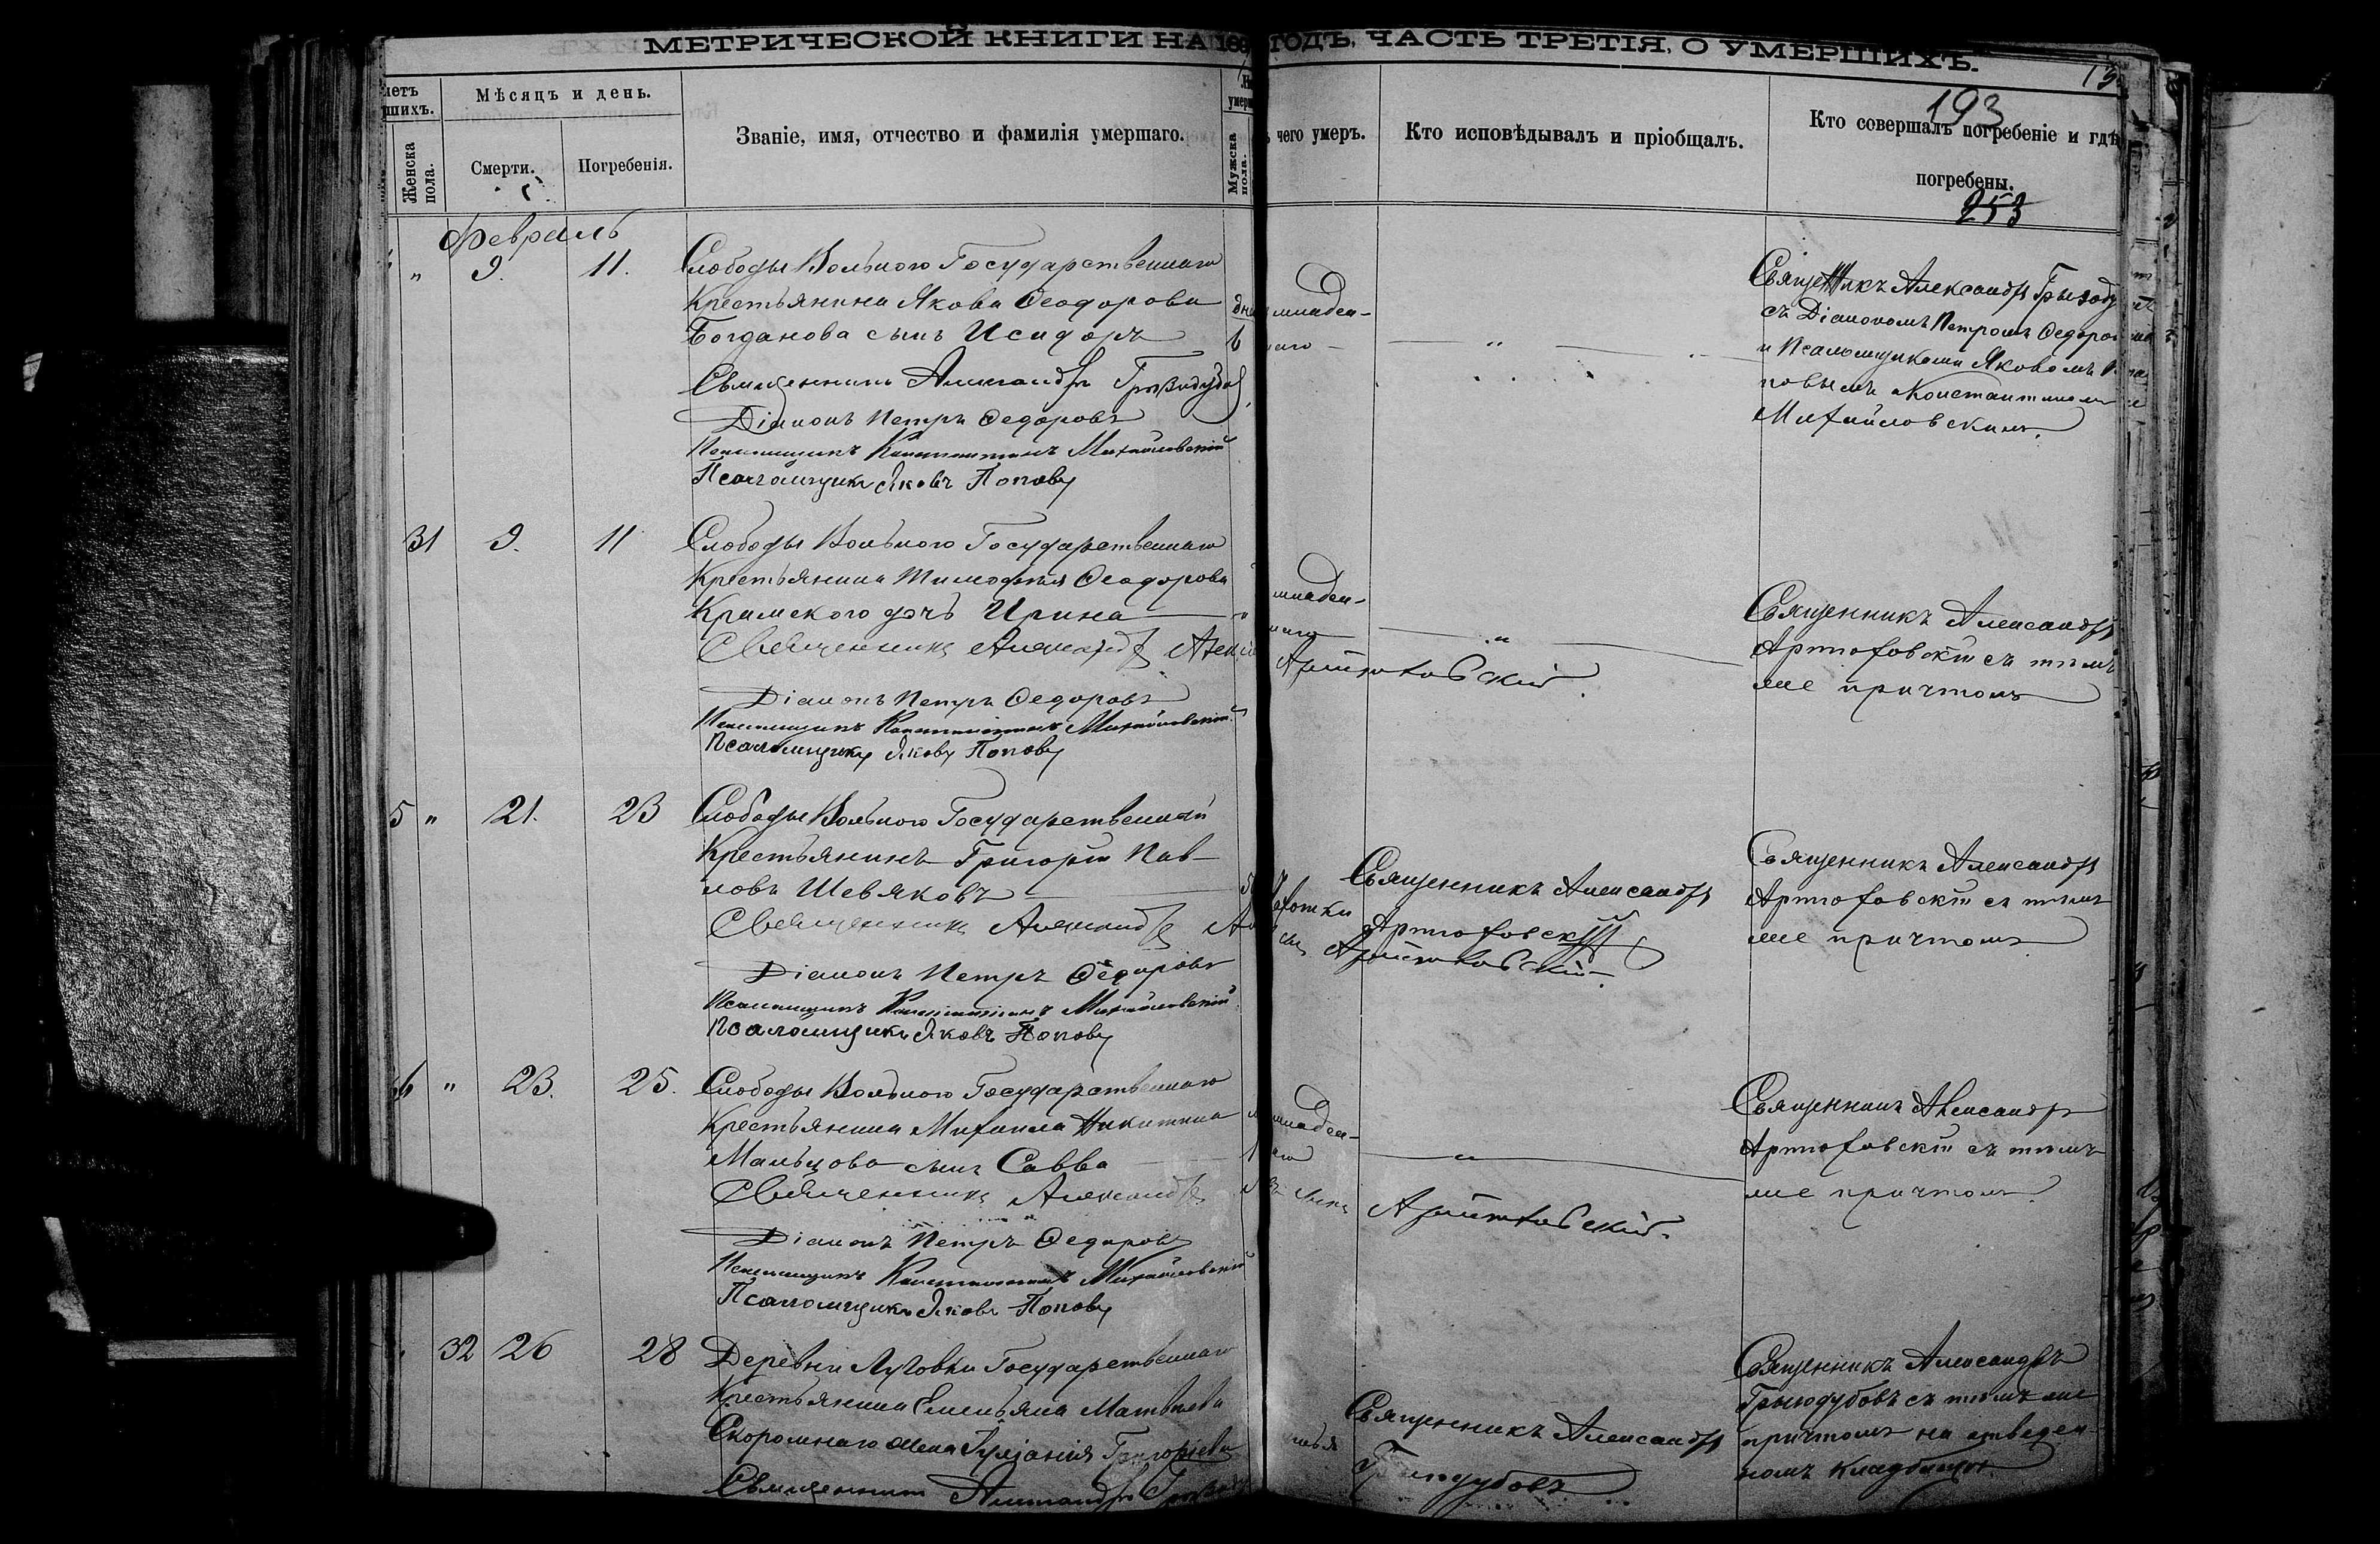 МЕТРИЧЕСКОЙ КНИГИ НА 186 ГОДЪ, ЧАСТЬ ТРЕТІЯ, О УМЕРШИХЪ.
193
Мѣсяцъ и день.
Женска пола.
Смерти.
Погребенія.
Званіе, имя, отчество и фамилія умершаго.
Мужска пола.
чего умеръ.
Кто исповѣдывалъ и пріобщалъ.
Кто совершалъ погребеніе и гдѣ
погребены.
253
Февраль
" 9. 11. Слободы Вольного Государственнаго
Крестьянина Якова Ѳеодорова
Богданова сынъ Исидоръ
младен-
Священникъ Александръ
съ Діакономъ Петромъ
и Псаломщиками Яковомъ
повымъ Константиномъ
Михайловскимъ.
Священникъ Александръ
Діаконъ Петръ Ѳедоровъ
Псаломщикъ Константинъ Михайловскій
Псаломщикъ Яковъ Поповъ
31 9. 11 Слободы Вольного Государственнаго
Крестьянина Тимофея Ѳеодорова
Крамского дочь Ирина
младен-
Священникъ Александръ
Артюховскій съ тѣмъ
же причтомъ
Священникъ Александръ
Артюховскій.
Діаконъ Петръ Ѳедоровъ
Псаломщикъ Константинъ Михайловскій
Псаломщикъ Яковъ Поповъ
5 " 21. 23 Слободы Вольного Государственный
Крестьянинъ Григорій Пав-
ловъ Шевяковъ
Священникъ Александръ
Артюховскій
Священникъ Александръ
Артюховскій съ тѣмъ
же причтомъ
Священникъ Александръ
Артюховскій.
Діаконъ Петръ Ѳедоровъ
Псаломщикъ Константинъ Михайловскій
Псаломщикъ Яковъ Поповъ
6 " 23. 25. Слободы Вольного Государственнаго
Крестьянина Михаила Никитина
Мальцова сынъ Савва
младен-
Священникъ Александръ
Артюховскій съ тѣмъ
же причтомъ
Священникъ Александръ
Артюховскій.
Діаконъ Петръ Ѳедоровъ
Псаломщикъ Константинъ Михайловскій
Псаломщикъ Яковъ Поповъ
32 26 28 Деревни Луговки Государственнаго
Крестьянина Емельяна Матвѣева
Скоромнаго жена Гуліанія Григорьева
Священникъ Александръ
Священникъ Александръ
съ тѣмъ же
причтомъ на отведен-
номъ кладбищѣ
Священникъ Александръ